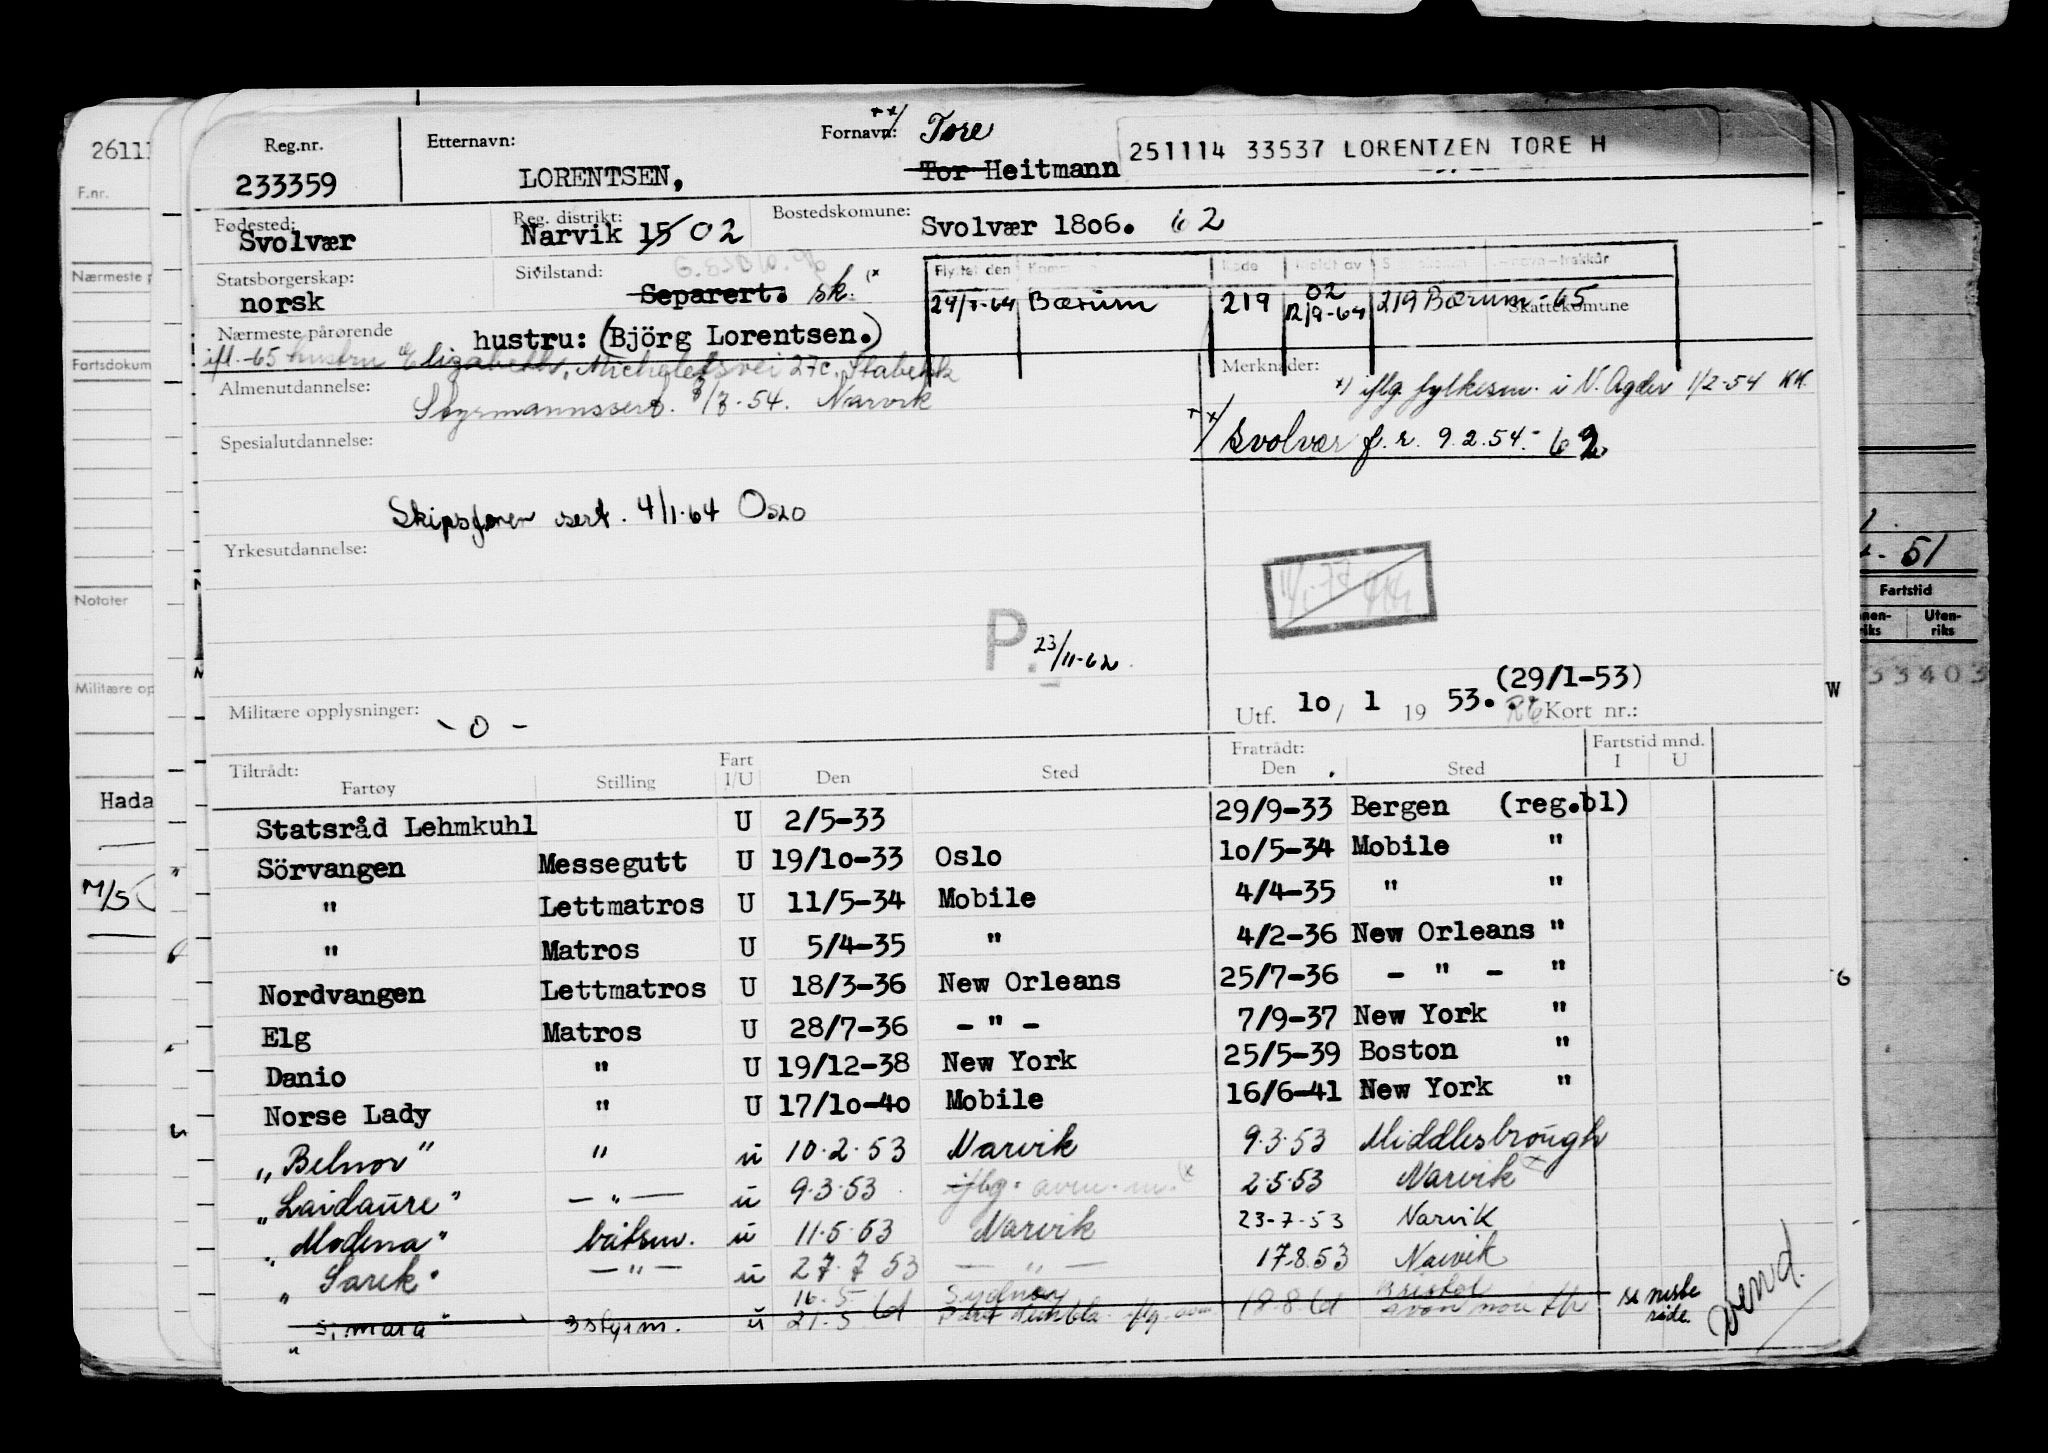 Reg.nr. Etternavn: Fornavn: xx/ Tore
233359 LORENTSEN, Tor Heitmann 251114 33537 LORENTZEN TORE H
Fødested: Reg. distrikt: Bostedskomune:
Svolvær Narvik 15 02 Svolvær 1806. 62
Statsborgerskap: Sivilstand: Flyttet den Kode Meldt av
norsk Separert. sk. x) 24/7-64 Bærum 219 02 12/9-64 219 Bærum -65 Skattekomune
Nærmeste pårørende hustru: (Björg Lorentsen.)
ifl. -65 hustru Elizabeth, Micheletsvei 27c, Stabekk Merknader:
Almenutdannelse: Styrmannssert. 3/7-54. Narvik x) iflg fylkesm. i N. Agder 1/2-54 KK.
Spesialutdannelse: xx/ Svolvær f.r. 9.2.54.- 62.
Skipsfører sert. 4/1-64 Oslo
Yrkesutdannelse:
P. 23/11-62
(29/1-53)
Militære opplysninger: - 0 - Utf. 10/ 1 19 53. Kort nr.:
Tiltrådt: Fart Fratrådt: Fartstid mnd.
Fartøy Stilling I/U Den Sted Den Sted I U
Statsråd Lehmkuhl U 2/5-33 29/9-33 Bergen (reg.bl)
Sörvangen Messegutt U 19/10-33 Oslo 10/5-34 Mobile "
" Lettmatros U 11/5-34 Mobile 4/4-35 " "
" Matros U 5/4-35 " 4/2-36 New Orleans "
Nordvangen Lettmatros U 18/3-36 New Orleans 25/7-36 - " - "
Elg Matros U 28/7-36 - " - 7/9-37 New York "
Danio " U 19/12-38 New York 25/5-39 Boston "
Norse Lady " U 17/10-40 Mobile 16/6-41 New York "
„Belnor" " u 10.2.53 Narvik 9.3.53 Middlesbrough
„Laidaure" - " - u 9.3.53 iflg. avm. m. x) 2.5.53 Narvik
„Modena" båtsm. u 11.5.53 Narvik 23-7-53 Narvik
„Sarek" - " - u 27.7 53 - " - 17.8.53 Narvik
„Simara" 3 styrm. u 16.5 21.5 61 Sydney Port Kembla iflg. avm. 18.8.61 Bristol Avonmouth se neste side.
Wend.
26111
F.nr.
Nærmeste p
Fartsdokum
Notater
Militære op
Hada
M/S
- 51
Fartstid
Uten-
riks
33403
W
6